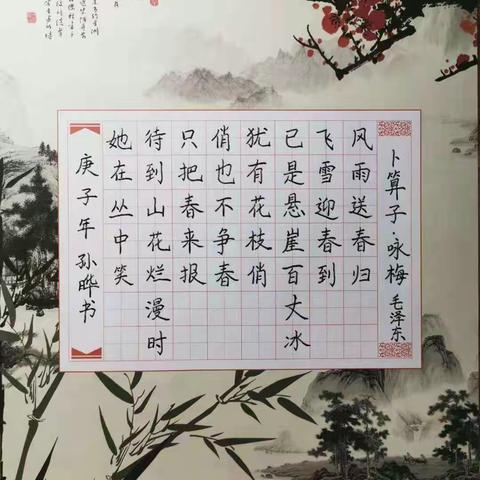 卜算子·咏梅 毛泽东
风雨送春归
飞雪迎春到
已是悬崖百丈冰
犹有花枝俏
俏也不争春
只把春来报
待到山花烂漫时
她在丛中笑
庚子年 孙晔书